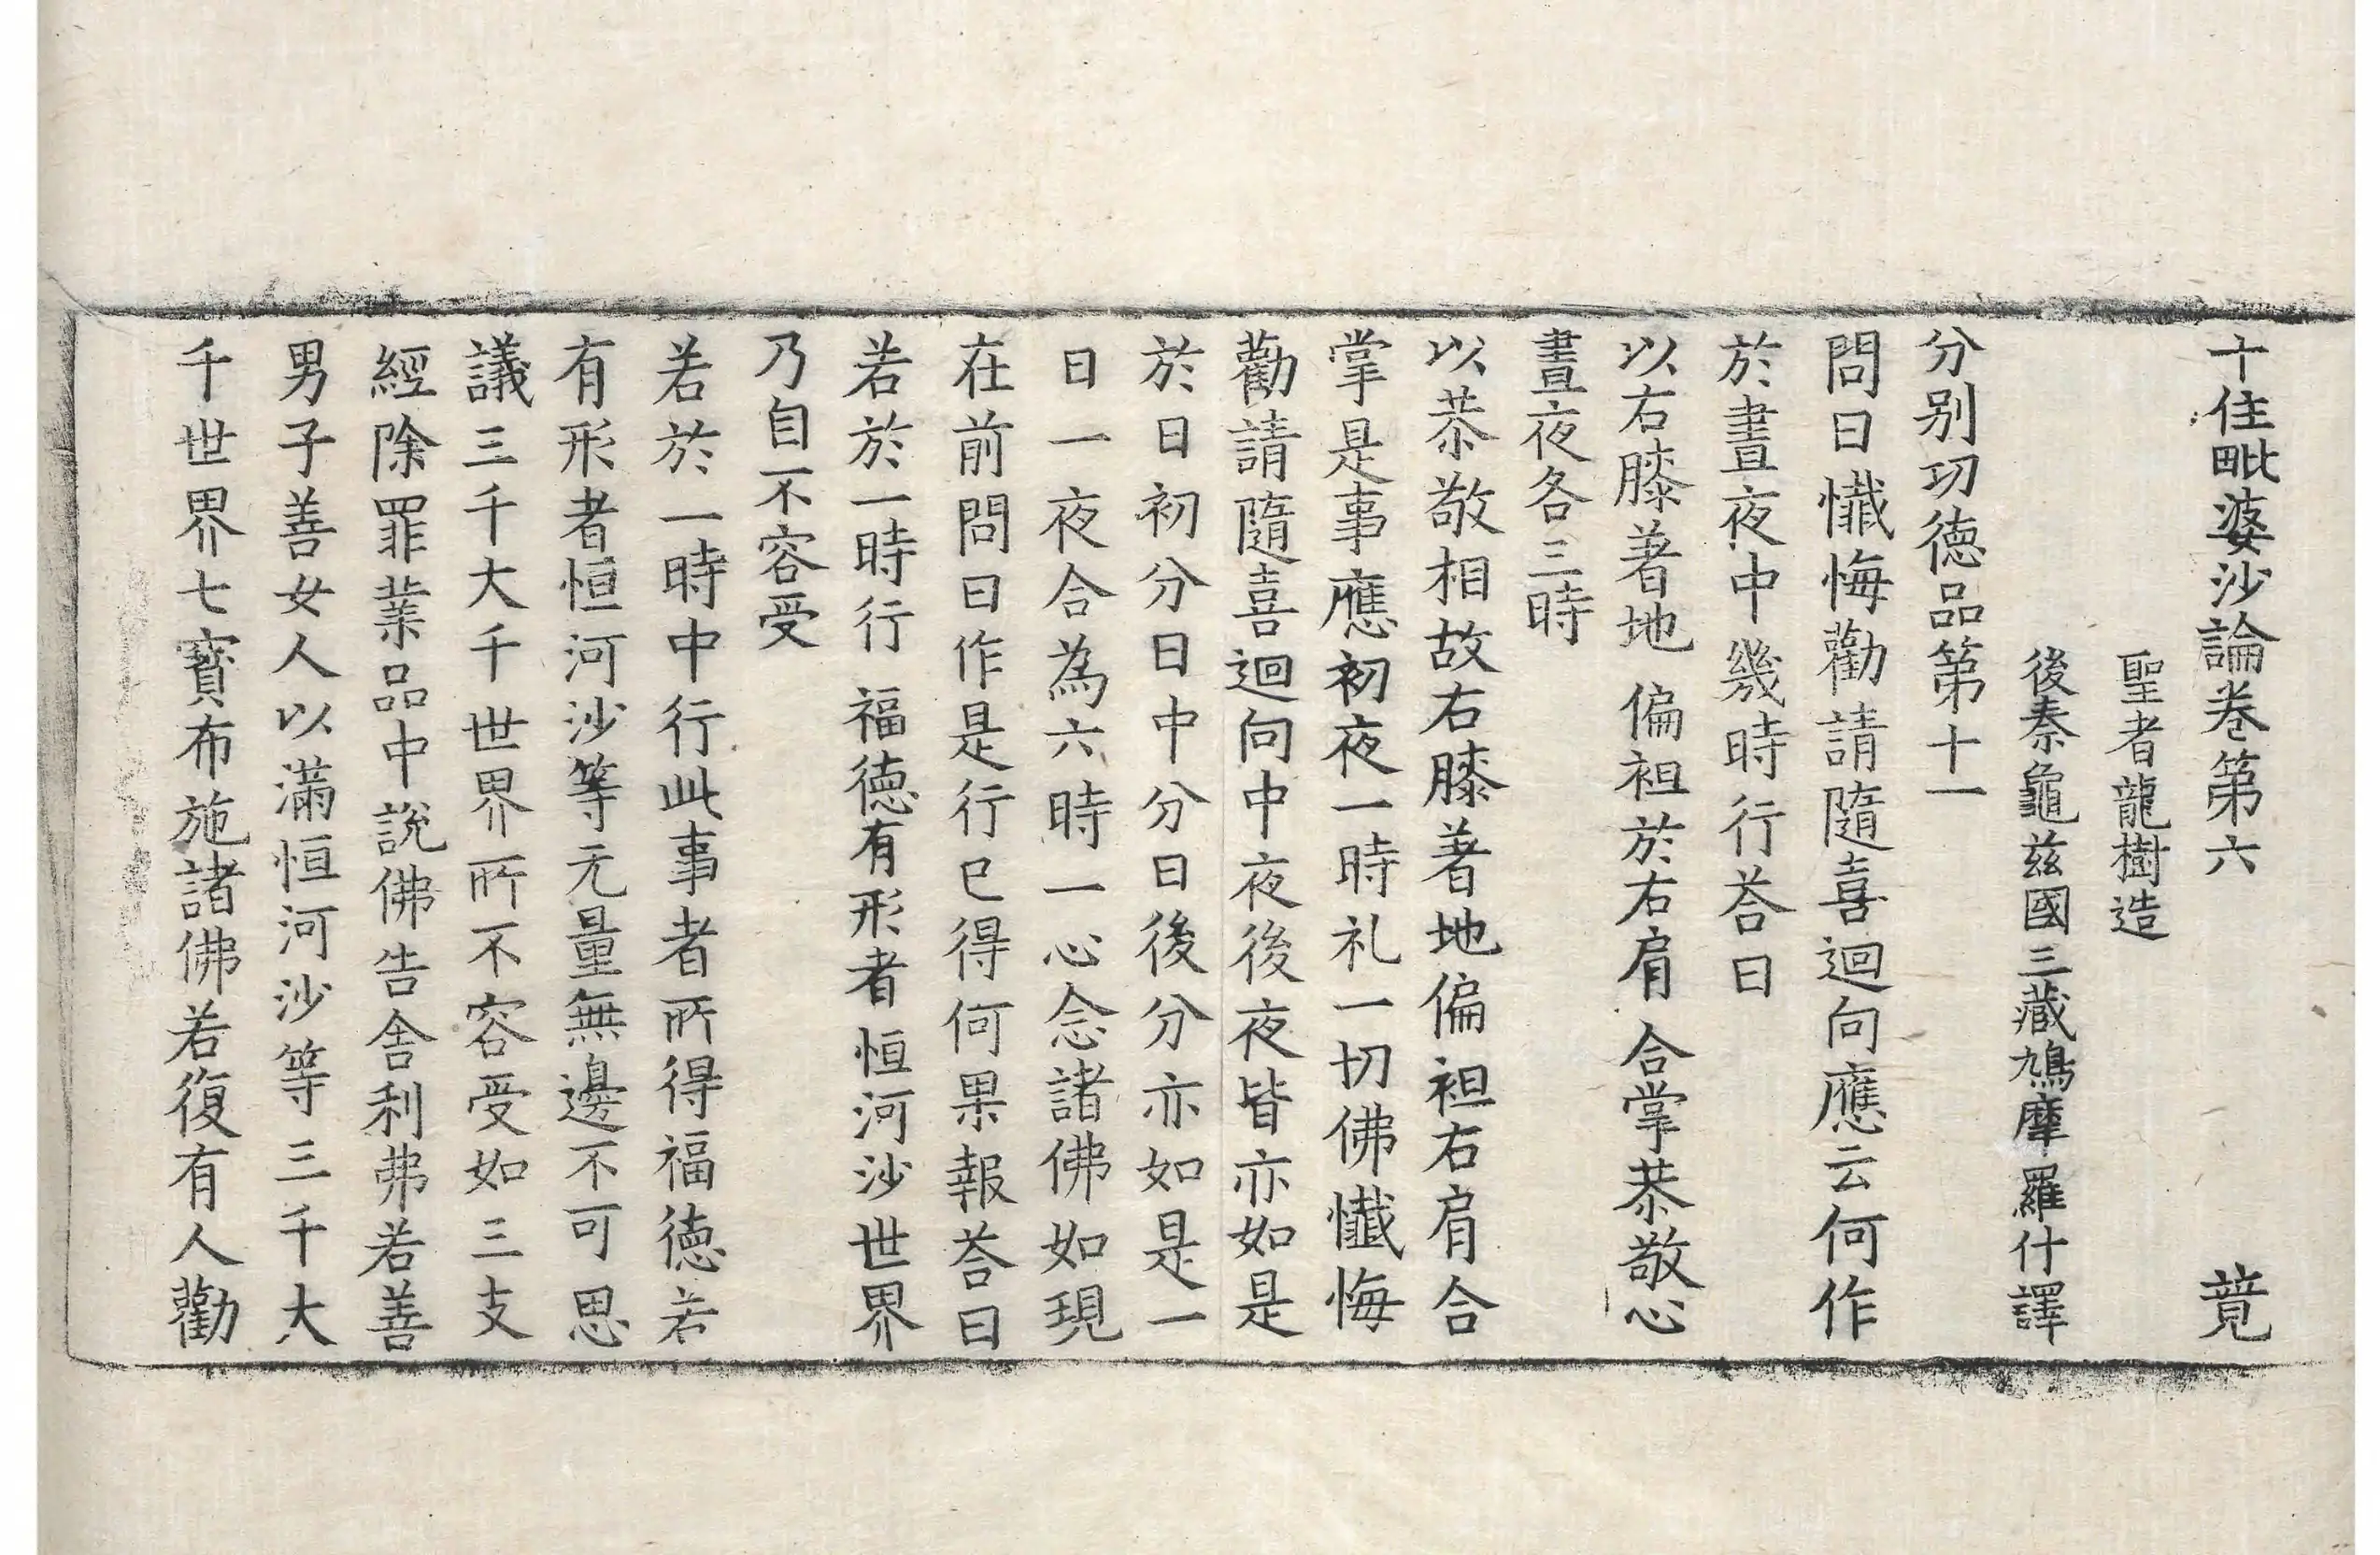 十住毗婆沙論卷第六 竟
聖者龍樹造
後秦龜茲國三藏鳩摩羅什譯
分别功德品第十一
問曰懺悔勸請隨喜迴向應云何作
於晝夜中幾時行荅曰
以右膝著地 偏袒於右肩 合掌恭敬心
晝夜各三時
以恭敬相故右膝著地偏袒右肩合
掌是事應初夜一時礼一切佛懺悔
勸請隨喜迴向中夜後夜皆亦如是
於日初分日中分日後分亦如是一
日一夜合為六時一心念諸佛如現
在前問曰作是行已得何果報荅曰
若於一時行 福德有形者 恒河沙世界
乃自不容受
若於一時中行此事者所得福德若
有形者恒河沙等无量無邊不可思
議三千大千世界所不容受如三支
經除罪業品中說佛告舍利弗若善
男子善女人以滿恒河沙等三千大
千世界七寶布施諸佛若復有人勸